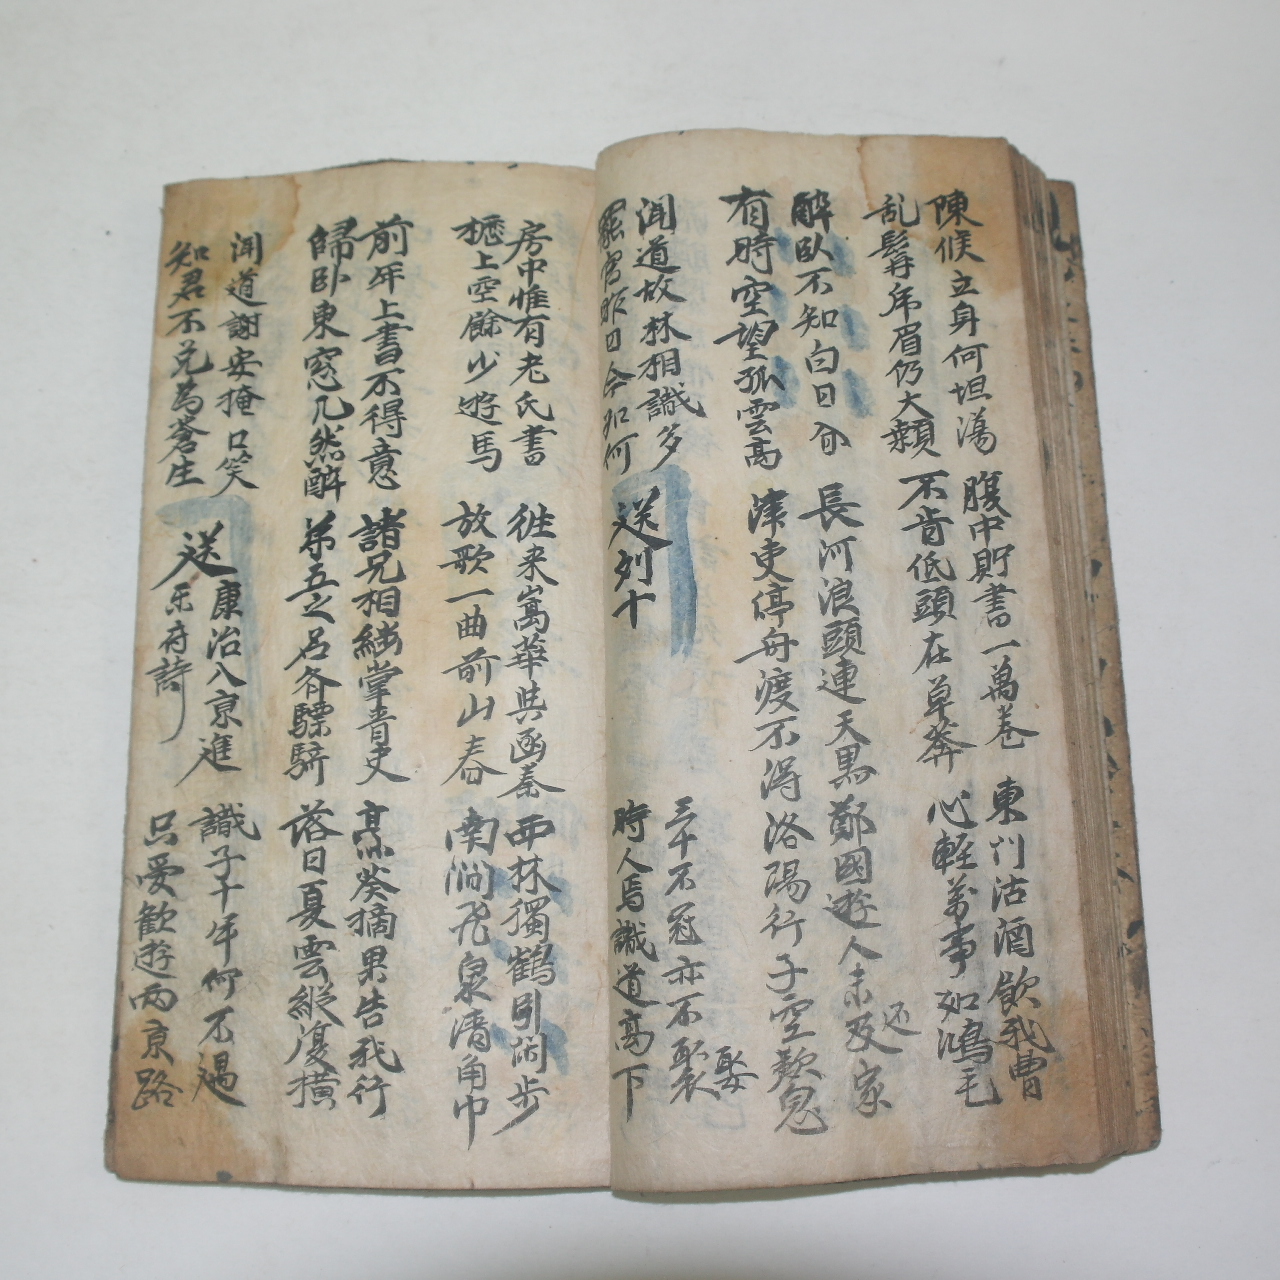 陳候立身何坦蕩
乱髯帍眉仍大顙
腹中貯書一萬卷
不肯低頭在草莽
東门沽酒飲我曹
心軽萬事如鴻毛
醉臥不知白日
有時空望孤雲高
長河浪頭連天黑
津吏停舟渡不淂
鄭國遊人未及家
还
洛陽行子空歎息
闻道故林相識多
罷官昨日今如何
送列十
三十不冠亦不聚
娶
時人焉識道高下
房中惟有老氏書
櫪上空餘少遊馬
徃来嵩華與函秦
放歌一曲前山春
西林獨鶴引闲步
南澗飛泉清角巾
前年上書不得意
歸卧東窓兀然醉
諸兄相継掌青史
苐五之名斉驃騎
烹葵摘果告我行
落日夏雲縱復橫
闻道謝安掩口笑
知君不免為蒼生
送康洽入京進
樂府詩
識子十年何不遇
只愛歡遊兩京路